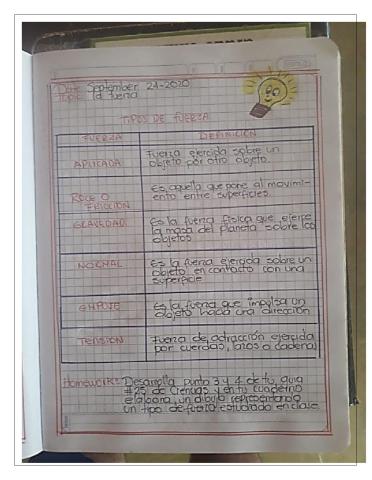 Date: September 24-2020
Topic: la fuerza
TIPOS DE FUERZA
FUERZA
DEFINICIÓN
APLICADA
Fuerza ejercida sobre un
objeto por otro objeto.
ROCE O
FRICCIÓN
Es aquella que pone al movimi-
ento entre superficies.
GRAVEDAD
Es la fuerza física que ejerce
la masa del planeta sobre los
objetos
NORMAL
Es la fuerza ejercida sobre un
objeto en contacto con una
superficie
EMPUJE
Es la fuerza que impulsa un
objeto hacia una dirección
TENSION
Fuerza de atracción ejercida
por cuerdas, lazos o cadenas
Homework: Desarrolla punto 3 y 4 de tu guia
#25 de Ciencias y en tu cuaderno
elabora, un dibujo representando
un tipo de fuerza estudiado en clase